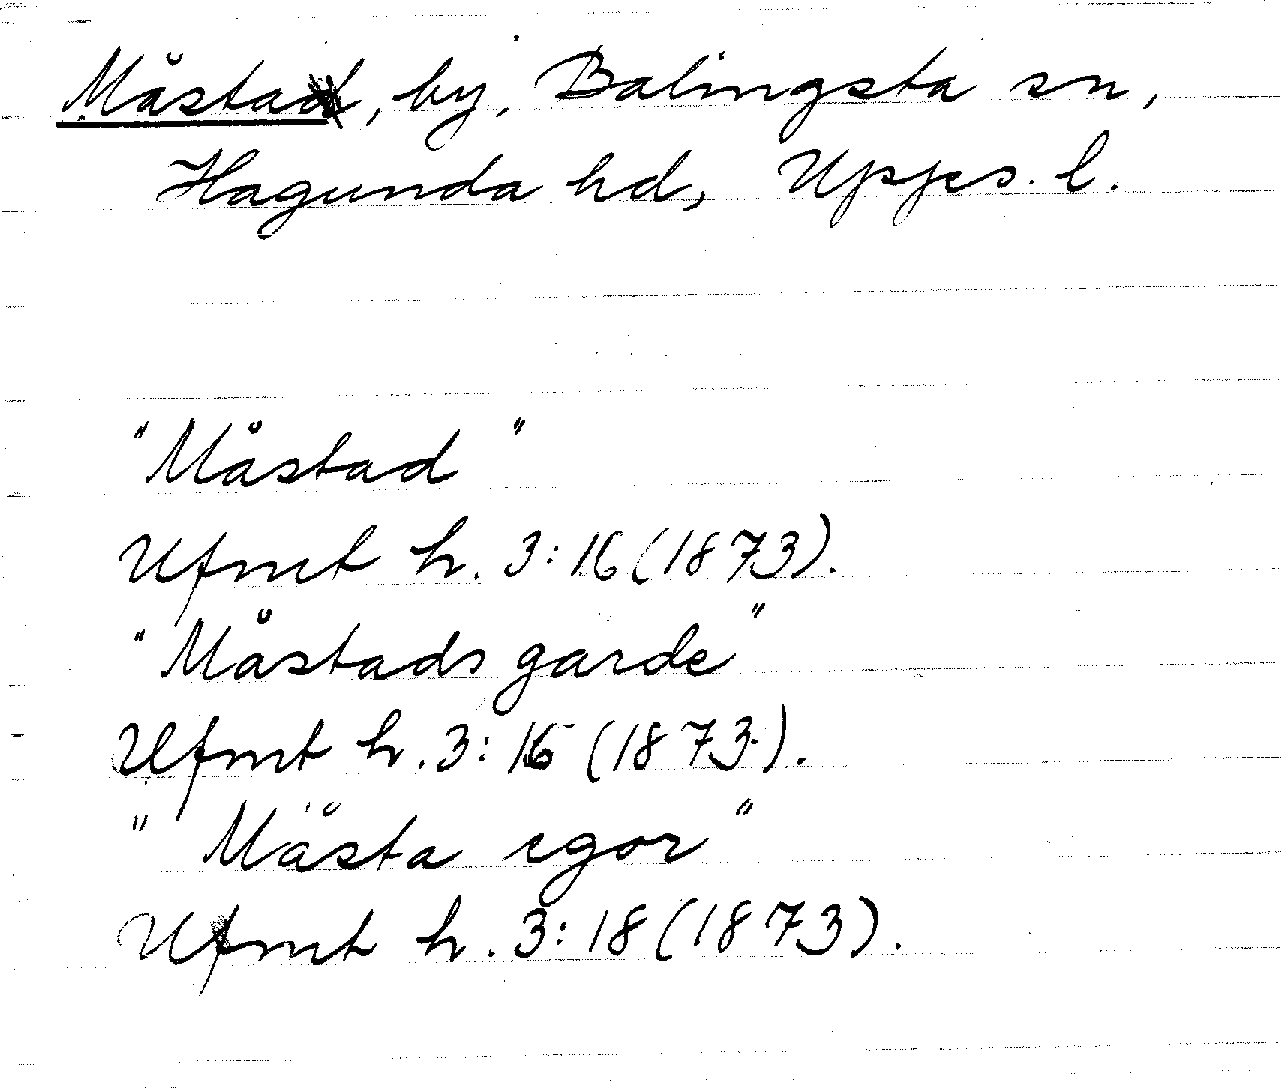 Måsta, by, Balingsta sn,
Hagunda hd, Upps. l.
"Måstad"
Ufmt h. 3:16 (1873).
"Måstads garde"
Ufmt h. 3:16 (1873).
"Måsta egor"
Ufmt h. 3:18 (1873).